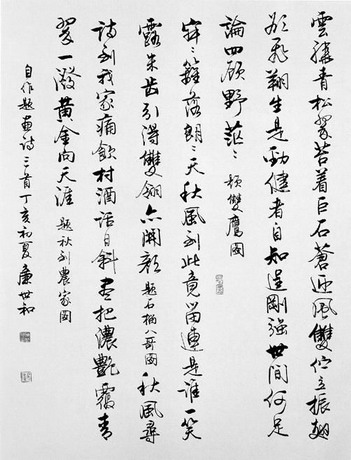 雲繞青松翠苔着巨石蒼迎風雙佇立振翅
欲飛翔生是勁健者自知逞剛強世間何足
論四顧野茫〻 題雙鷹圖
〻籬落朗〻天秋風到此竟留連是誰一笑
露朱齒引得雙亦開顏 題石榴八哥圖 秋風尋
訪到我家痛飲村酒話日斜盡把濃艷覆青
翠一潑黃金向天涯 題秋到農家圖
自作題畫詩三首丁亥初夏廉世和